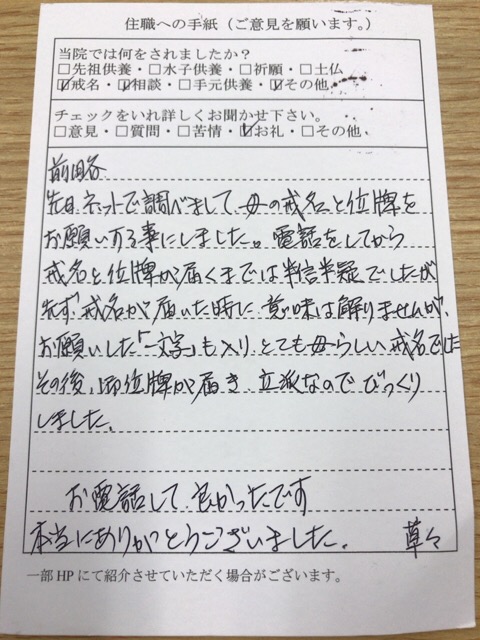 住職への手紙（ご意見を願います。）
当院では何をされましたか？
□先祖供養・□水子供養・□祈願・□土仏
☑戒名・☑相談・□手元供養・☑その他
チェックをいれ詳しくお聞かせ下さい。
□意見・□質問・□苦情・☑お礼・□その他
前田各
先日ネットで調べまして母の戒名と位牌を
お願いする事にしました。電話をしてから
戒名と位牌が届くまでは半信半疑でしたが
先ず、戒名が届いた時に意味は解りませんが、
お願いした「一文字」も入り、とても母らしい戒名でした
その後、位牌が届き、立派なのでびっくり
しました。
お電話して良かったです
本当にありがとうございました。 草々
一部HPにて紹介させていただく場合がございます。